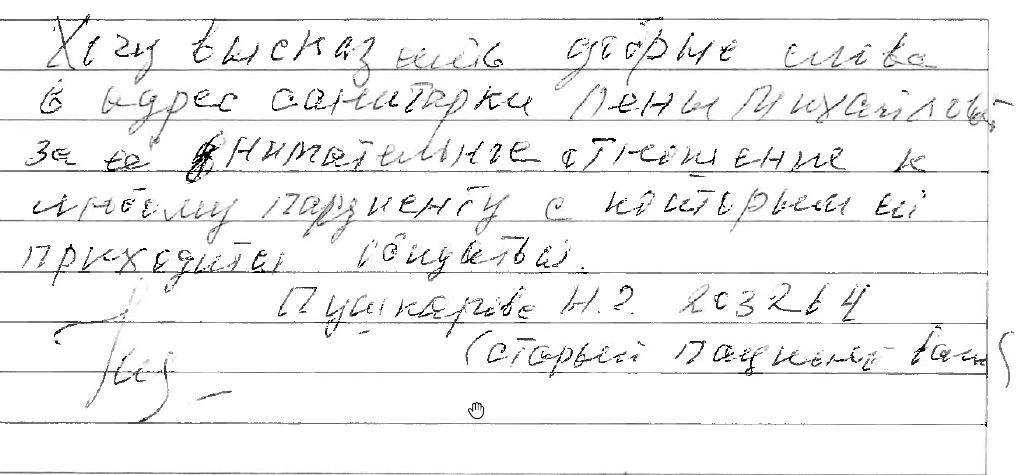 Хочу высказать добрые слова
в адрес санитарки Лены Михайловой
за её внимательное отношение к
любому пациенту с которым ей
приходится общаться.
Пушкарёва Н.Г. 203264
(старый пациент ваш)